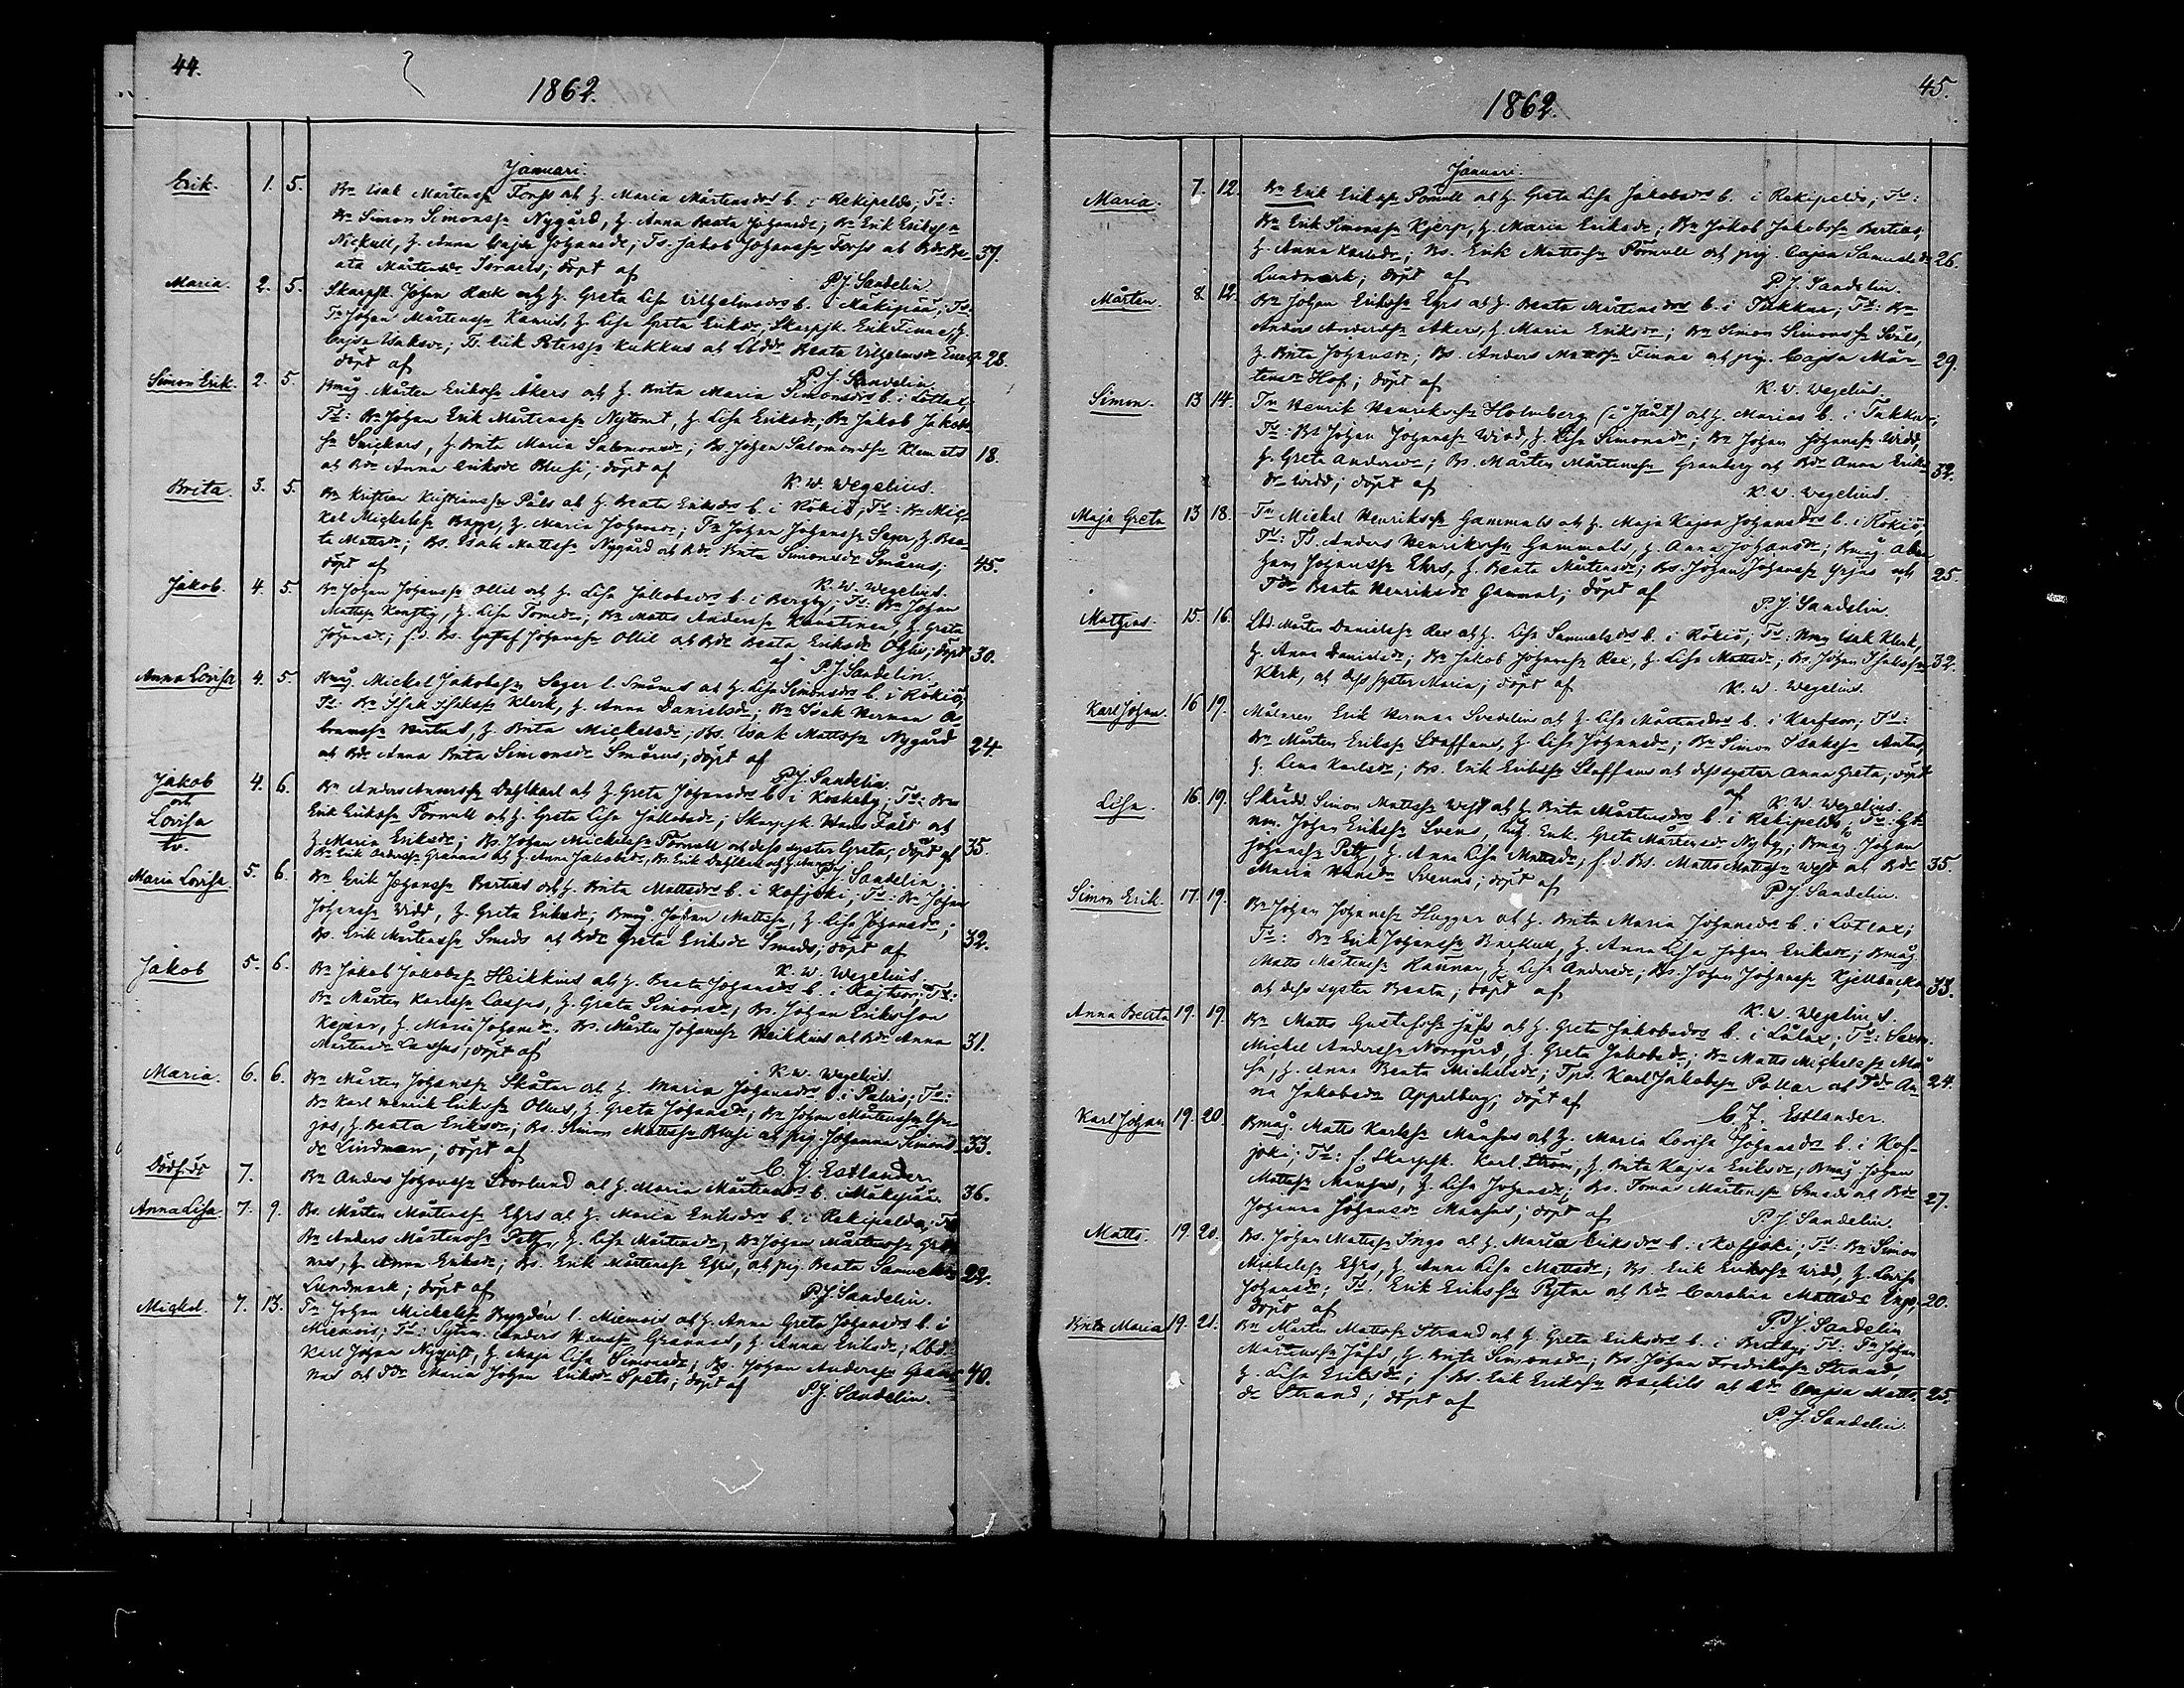 44.
1862.
Januari.
Erik. 1. 5. Bn Isak Mårtenss Forss o h. Maria Mårtensdr b. i Rekipeldo; Fs:
Bn Simon Simonss Nygård, h. Anna Beata Johansdr; Bn Erik Erikss
h. Anna Cajsa Johansdr; Ts. Jakob Johanss Forss o Bdr Be- 37.
ata Mårtensdr Israels; döpt af
P. J. Sandelin.
Maria. 2. 5. Skarpsk. Johan Rask och h. Greta Lisa Vilhelmsdr b. i Mäkipää; Fs:
Johan Mårtenss h. Lisa Greta Eriksdr; Skarpsk. Erik Finne, h.
Cajsa Isaksdr; Ts. Erik Peterss Kukkus o Beata Vilhelmsdr 28.
döpt af
P. J. Sandelin.
Simon Erik. 2. 5. Bmåg Mårten Erikss Åkers och h. Brita Maria Simonsdr b. i Lotlax;
Fs: Bn Johan Erik Mårtenss Nytomt, h. Lisa Eriksdr; Bn Jakob Jakobs-
sn Snickars, h. Brita Maria Salomonsdr; Bs. Johan Salomonss Klemets 18.
o Bdr Anna Eriksdr Blusi; döpt af
K. W. Wegelius.
Brita. 3. 5. Bn Kristian Kristianss Påls o h. Beata Eriksdr b. i Rökiö; Fs: Bn Mic-
kel Mickelss h. Maria Johansdr; Johan Johanss Seger, h. Bea-
ta Mattsdr; Bs. Isak Mattss Nygård o Bdr Brita Simonsdr Smårus; 45.
döpt af
K. W. Wegelius.
Jakob. 4. 5. Bn Johan Johanss Ollil och h. Lisa Jakobsdr b. i Bergby; Fs: Bn Johan
Mattss h. Lisa Tomasdr; Bn Matts Anderss h. Greta
Johansdr; Bs. Gustaf Johanss Ollil o Bdr Beata Eriksdr döpt 30.
af P. J. Sandelin.
Anna Lovisa 4. 5 Bmåg. Mickel Jakobss Seger l. Smårus o h. Lisa Simonsdr b. i Rökiö;
Fs: Bn Isak Isakss Klerk, h. Anna Danielsdr; Bn Isak Herman A-
bramss h. Brita Mickelsdr; Bs. Isak Mattss Nygård 24.
o Bdr Anna Brita Simonsdr Smårus; döpt af
P. J. Sandelin.
Jakob 4. 6. Bn Anders Anderss Dahlkarl o h. Greta Johansdr b. i Koskeby; Fs: Bn
och
Lovisa Erik Erikss Fornull och h. Greta Lisa Jakobsdr; Skarpsk. Hans Fält och
tv. h. Maria Eriksdr; Bs. Johan Mickelss Fornull och dess syster Greta; döpt af 35.
Bn Erik Anderss Grannas o h. Anna Jakobsdr, Bs. Erik Dahlkarl
P. J. Sandelin.
Maria Lovisa. 5. 6. Bn Erik Johanss Bertils och h. Brita Mattsdr b. i Kofjoki; Fs: Bn Johan
Johanss Widd, h. Greta Eriksdr; Bmåg. Johan Mattss, h. Lisa Johansdr;
Bs. Erik Mårtenss Smeds o Bdr Greta Eriksdr Smeds; döpt af 32.
K. W. Wegelius.
Jakob 5. 6. Bn Jakob Jakobss Heikkius o h. Beata Johansdr b. i Kaitsor; Fs:
Bn Mårten Karlss Lasses, h. Greta Simonsdr; Bs. Johan Eriksson
h. Maria Johansdr; Bs. Mårten Johanss Heikkius o Bdr Anna 31.
Mårtensdr döpt af
K. W. Wegelius.
Maria. 6. 6. Bn Mårten Johanss Skåtar o h. Maria Johansdr i Palvis; Fs:
Bn Karl Henrik Erikss Ollus, h. Greta Johansdr; Bn Johan Mårtenss
h. Beata Eriksdr; Bs. Simon Mattss Blusi o pig. Johanna Simons- 33.
dr Lindman; döpt af
C. J. Estlander.
Dödf. 7. Bn Anders Johanss Storlund o h. Maria Mårtensdr b. i Mäkipää. 36.
Anna Lisa. 7. 9. Bs. Mårten Mårtenss Ehrs o h. Maria Eriksdr b. i Rekipeldo; Fs:
Bn Anders Mårtenss Pett, h. Lisa Mårtensdr; Bn Johan Mårtenss Gran-
nas, h. Anna Eriksdr; Bs. Erik Mårtenss Ehrs, o pig. Beata Samuelsdr 22.
Lundmark; döpt af P. J. Sandelin.
Mickel. 7. 13. Johan Mickelss Bygdén l. Miemois o h. Anna Greta Johansdr b. i
Miemois; Fs: Anders Hanss Grannas, h. Anna Eriksdr; Lbd.
Karl Johan Nyqvist, h. Maja Lisa Simonsdr; Bs. Johan Anderss Gran- 40.
nas och Maria Johan Eriksdr döpt af P. J. Sandelin.
45.
1862.
Januari.
Maria. 7. 12. Bn Erik Erikss Fornull o h. Greta Lisa Jakobsdr b. i Rekipeldo; Fs:
Bn Erik Simonss h. Maria Eriksdr; Bn Jakob Jakobss Bertils,
h. Anna Karlsdr; Bs. Erik Mattss Fornull och pig. Cajsa Samuelsdr 26.
Lundmark; döpt af P. J. Sandelin.
Mårten. 8. 12. Bn Johan Erikss Ehrs o h. Beata Mårtensdr b. i Tukkur; Fs: Bn
Anders Anderss Åkers, h. Maria Eriksdr; Bn Simon Simonss
h. Brita Johansdr; Bs. Anders Mattss Finne och pig. Cajsa Mår- 29.
tensdr Hof; döpt af K. W. Wegelius.
Simon. 13 14. Henrik Henrikss Holmberg o h. Marias b. i Tukkur;
Fs: Bn Johan Johanss Widd, h. Lisa Simonsdr; Bn Johan Johanss Widd,
h. Greta Andersdr; Bs. Mårten Mårtenss Granberg och Bdr Anna Eriks- 32.
dr Widd; döpt af K. W. Wegelius.
Maja Greta 13 18. Mickel Henrikss Gammals o h. Maja Kajsa Johansdr b. i Rökiö;
Fs: Ts. Anders Henrikss Gammals, h. Anna Johansdr; Bmåg. Abra-
ham Johanss Ehrs, h. Beata Mårtensdr; Bs. Johan Johanss och 25.
Tdr Beata Henriksdr Gammal; döpt af P. J. Sandelin.
Mathias. 15. 16. Lbd. Mårten Danielss Rex o h. Lisa Samuelsdr b. i Rökiö; Fs: Bmåg Isak Klerk,
h. Anna Danielsdr; Bn Jakob Johanss Rex, h. Lisa Mattsdr; Bs. Johan Isakss 32.
Klerk, o dess syster Maria; döpt af K. W. Wegelius.
Karl Johan. 16 19. Målaren Erik Herman Svedelius och h. Lisa Mårtensdr b. i Karfsor; Fs:
Bn Mårten Erikss Staffans, h. Lisa Johansdr; Bn Simon Isakss Antus,
h. Lena Karlsdr; Bs. Erik Erikss Staffans och dess syster Anna Greta; döpt
af K. W. Wegelius.
Lisa. 16 19. Skrädd. Simon Mattss West o h. Brita Mårtensdr b. i Rekipeldo; Fs:
Johan Erikss Svens, Enk. Greta Mårtensdr Nyby; Bmåg. Johan
Johanss Pett, h. Anna Lisa Mattsdr; Bs. Matts Mattss West o Bdr 35.
Maria Hansdr Svenns; döpt af P. J. Sandelin.
Simon Erik. 17 19. Bn Johan Johanss Huggar o h. Brita Maria Johansdr b. i Lotlax;
Fs: Bn Erik Johanss Backull, h. Anna Lisa Johan Eriksdr; Bmåg.
Matts Mårtenss Raunar, h. Lisa Andersdr; Bs. Johan Johanss Kjellbacka 33.
o dess syster Beata; döpt af K. W. Wegelius.
Anna Beata 19. 19. Bn Matts Gustafss Jåfs o h. Greta Jakobsdr b. i Lålax; Fs:
Mickel Anderss Norrgård, h. Greta Jakobsdr; Bn Matts Mickelss Må-
h. Anna Beata Mickelsdr; Tps. Karl Jakobss Pollar o Tdr An- 24.
na Jakobsdr Appelberg; döpt af C. J. Estlander.
Karl Johan 19. 20. Bmåg. Matts Karlss Månsus och h. Maria Lovisa Johansdr b. i Kof-
joki; Fs: f. Skarpsk. Karl Ström, h. Brita Kajsa Eriksdr; Bmåg. Johan
Mattss Månsus, h. Lisa Johansdr; Bs. Tomas Mårtenss Smeds och Bdr 27.
Johanna Johansdr Månsus; döpt af P. J. Sandelin.
Matts. 19. 20. Bs. Johan Mattss Ingo o h. Maria Eriksdr b. i Kofjoki; Fs: Bn Simon
Mickelss Ehrs, h. Anna Lisa Mattsdr; Bs. Erik Erikss Widd, h. Lovisa
Johansdr; Ts. Erik Erikss o Bdr Carolina Mattsdr Ingo; 20.
döpt af P. J. Sandelin
Brita Maria 19. 21. Bn Mårten Mattss Strand och h. Greta Eriksdr b. i Bertby; Fs: Johan
Mårtenss Jåfs, h. Brita Simonsdr; Bs. Johan Fredrikss Strand,
h. Lisa Eriksdr; Bs. Erik Erikss Backils o Bdr Cajsa Matts- 25.
dr Strand; döpt af
P. J. Sandelin.